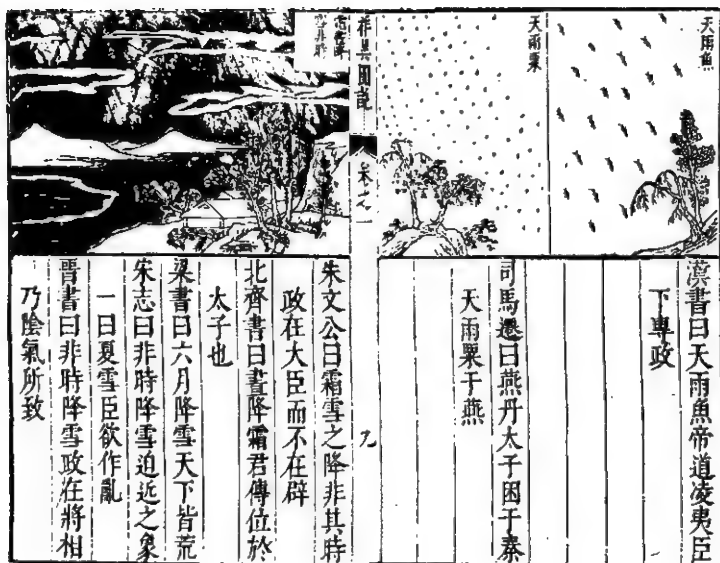 天雨魚
漢書曰天雨魚帝道凌夷臣
下專政
天雨粟
司馬遷曰燕丹太子困于秦
天雨粟于燕
祥異圖說
九
朱文公曰霜雪之降非其時
政在大臣而不在辟
北齊書曰晝降霜君傳位於
太子也
梁書曰六月降雪天下皆荒
宋志曰非時降雪迫近之象
一曰夏雪臣欲作亂
晋書曰非時降雪政在將相
乃陰氣所致